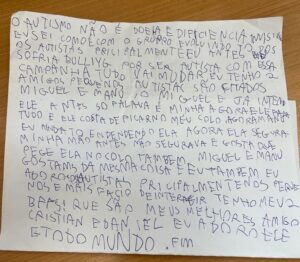 O AUTISMO NÃO É DOENÇA E DIFICIENCIA
EU SEI COMO É COM O GRUPO EVOLUIDO TODOS
OS AUTISTA PRICIPALMENTE EU ANTES EU
SOFRIA BULLYING POR SER AUTISTA COM ESSA
CAMPANHA TUDO VAI MUDAR EU TENHO 2
AMIGOS PEQUENOS AUTISTAS SÃO
MIGUEL E MANU O MIGUEL E JA
ELE ANTES SO FALAVA É MINHA AGORA ELE FALA
TUDO E ELE GOSTA DE FICAR NO MEU COLO AGORA MANU
EU TO ENDENDENDO ELA AGORA ELA SEGURA
MINHA MÃO ANTES NÃO SEGURAVA E GOSTA QUE
PEGE ELA NO COLO TAMBEM MIGUEL E MANU
GOSTAM DA MESMA COISA E EU TAMBEM EU
ADORO AUTISTAS PRICIPALMENTE NOS PEQUE
NOS E MAIS FACIO DE INTERAGIR TENHO MEU 2
QUE SÃO MEUS MELHORES AMIGO
CRISTIAN E DANIEL EU ADORO ELE
E TODO MUNDO. FIM